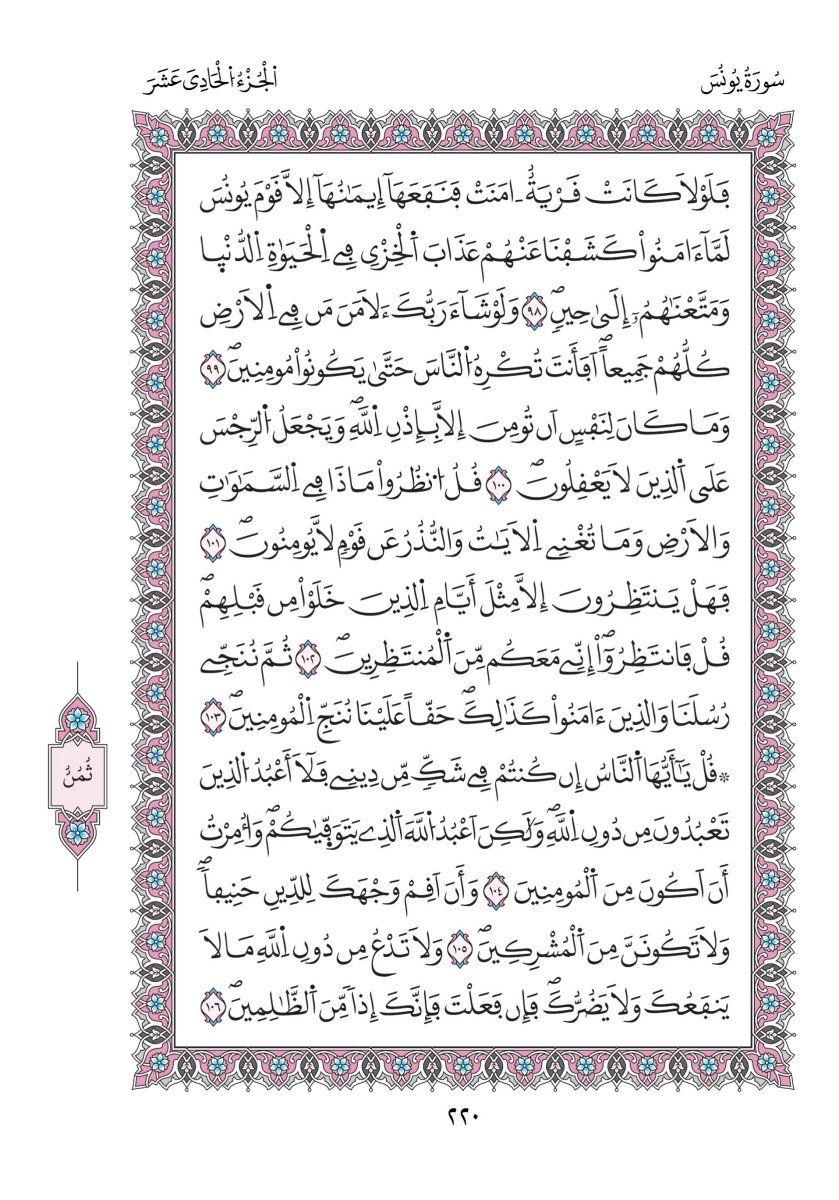 سُورَةُ يُونُسَ
اَ۬لْجُزْءُ اُ۬لْحَادِيَ عَشَرَ
فَلَوْلَا كَانَتْ قَرْيَةٌ ـ امَنَتْ فَنَفَعَهَآ إِيمَٰنُهَآ إِلَّا قَوْمَ يُونُسَ
لَمَّآ ءَامَنُواْ كَشَفْنَا عَنْهُمْ عَذَابَ اَ۬لْخِزْيِ فِے اِ۬لْحَيَوٰةِ اِ۬لدُّنْي۪ا
وَمَتَّعْنَٰهُمُۥٓ إِلَىٰ حِينٖۖ ٩٨ وَلَوْ شَآءَ رَبُّكَ ءَلَامَنَ مَن فِے اِ۬لَارْضِ
كُلُّهُمْ جَمِيعاًۖ اَفَأَنتَ تُكْرِهُ اُ۬لنَّاسَ حَتَّىٰ يَكُونُواْ مُومِنِينَۖ ٩٩
وَمَا كَانَ لِنَفْسٍ اَن تُومِنَ إِلَّا بِإِذْنِ اِ۬للَّهِۖ وَيَجْعَلُ اُ۬لرِّجْسَ
عَلَى اَ۬لذِينَ لَا يَعْقِلُونَۖ ١٠٠ قُلُ اُ۟نظُرُواْ مَاذَا فِے اِ۬لسَّمَٰوَٰتِ
وَالَارْضِ وَمَا تُغْنِے اِ۬لَايَٰتُ وَالنُّذُرُ عَن قَوْمٖ لَّا يُومِنُونَۖ ١٠١
فَهَلْ يَنتَظِرُونَ إِلَّا مِثْلَ أَيَّامِ اِ۬لذِينَ خَلَوْاْ مِن قَبْلِهِمْۖ
قُلْ فَانتَظِرُوٓاْ إِنِّے مَعَكُم مِّنَ اَ۬لْمُنتَظِرِينَۖ ١٠٢ ثُمَّ نُنَجِّے
رُسُلَنَا وَالذِينَ ءَامَنُواْ كَذَٰلِكَۖ حَقّاً عَلَيْنَا نُنَجِّ اِ۬لْمُومِنِينَۖ ١٠٣
۞ قُلْ يَٰٓأَيُّهَا اَ۬لنَّاسُ إِن كُنتُمْ فِے شَكّٖ مِّن دِينِے فَلَآ أَعْبُدُ اُ۬لذِينَ
تَعْبُدُونَ مِن دُونِ اِ۬للَّهِۖ وَلَٰكِنَ اَعْبُدُ اُ۬للَّهَ اَ۬لذِے يَتَوَفّ۪يٰكُمْۖ وَأُمِرْتُ
أَنَ اَكُونَ مِنَ اَ۬لْمُومِنِينَ ١٠٤ وَأَنَ اَقِمْ وَجْهَكَ لِلدِّينِ حَنِيفاًۖ
وَلَا تَكُونَنَّ مِنَ اَ۬لْمُشْرِكِينَۖ ١٠٥ وَلَا تَدْعُ مِن دُونِ اِ۬للَّهِ مَا لَا
يَنفَعُكَ وَلَا يَضُرُّكَۖ فَإِن فَعَلْتَ فَإِنَّكَ إِذاٗ مِّنَ اَ۬لظَّٰلِمِينَۖ ١٠٦
ثُمُنُ
٢٢٠